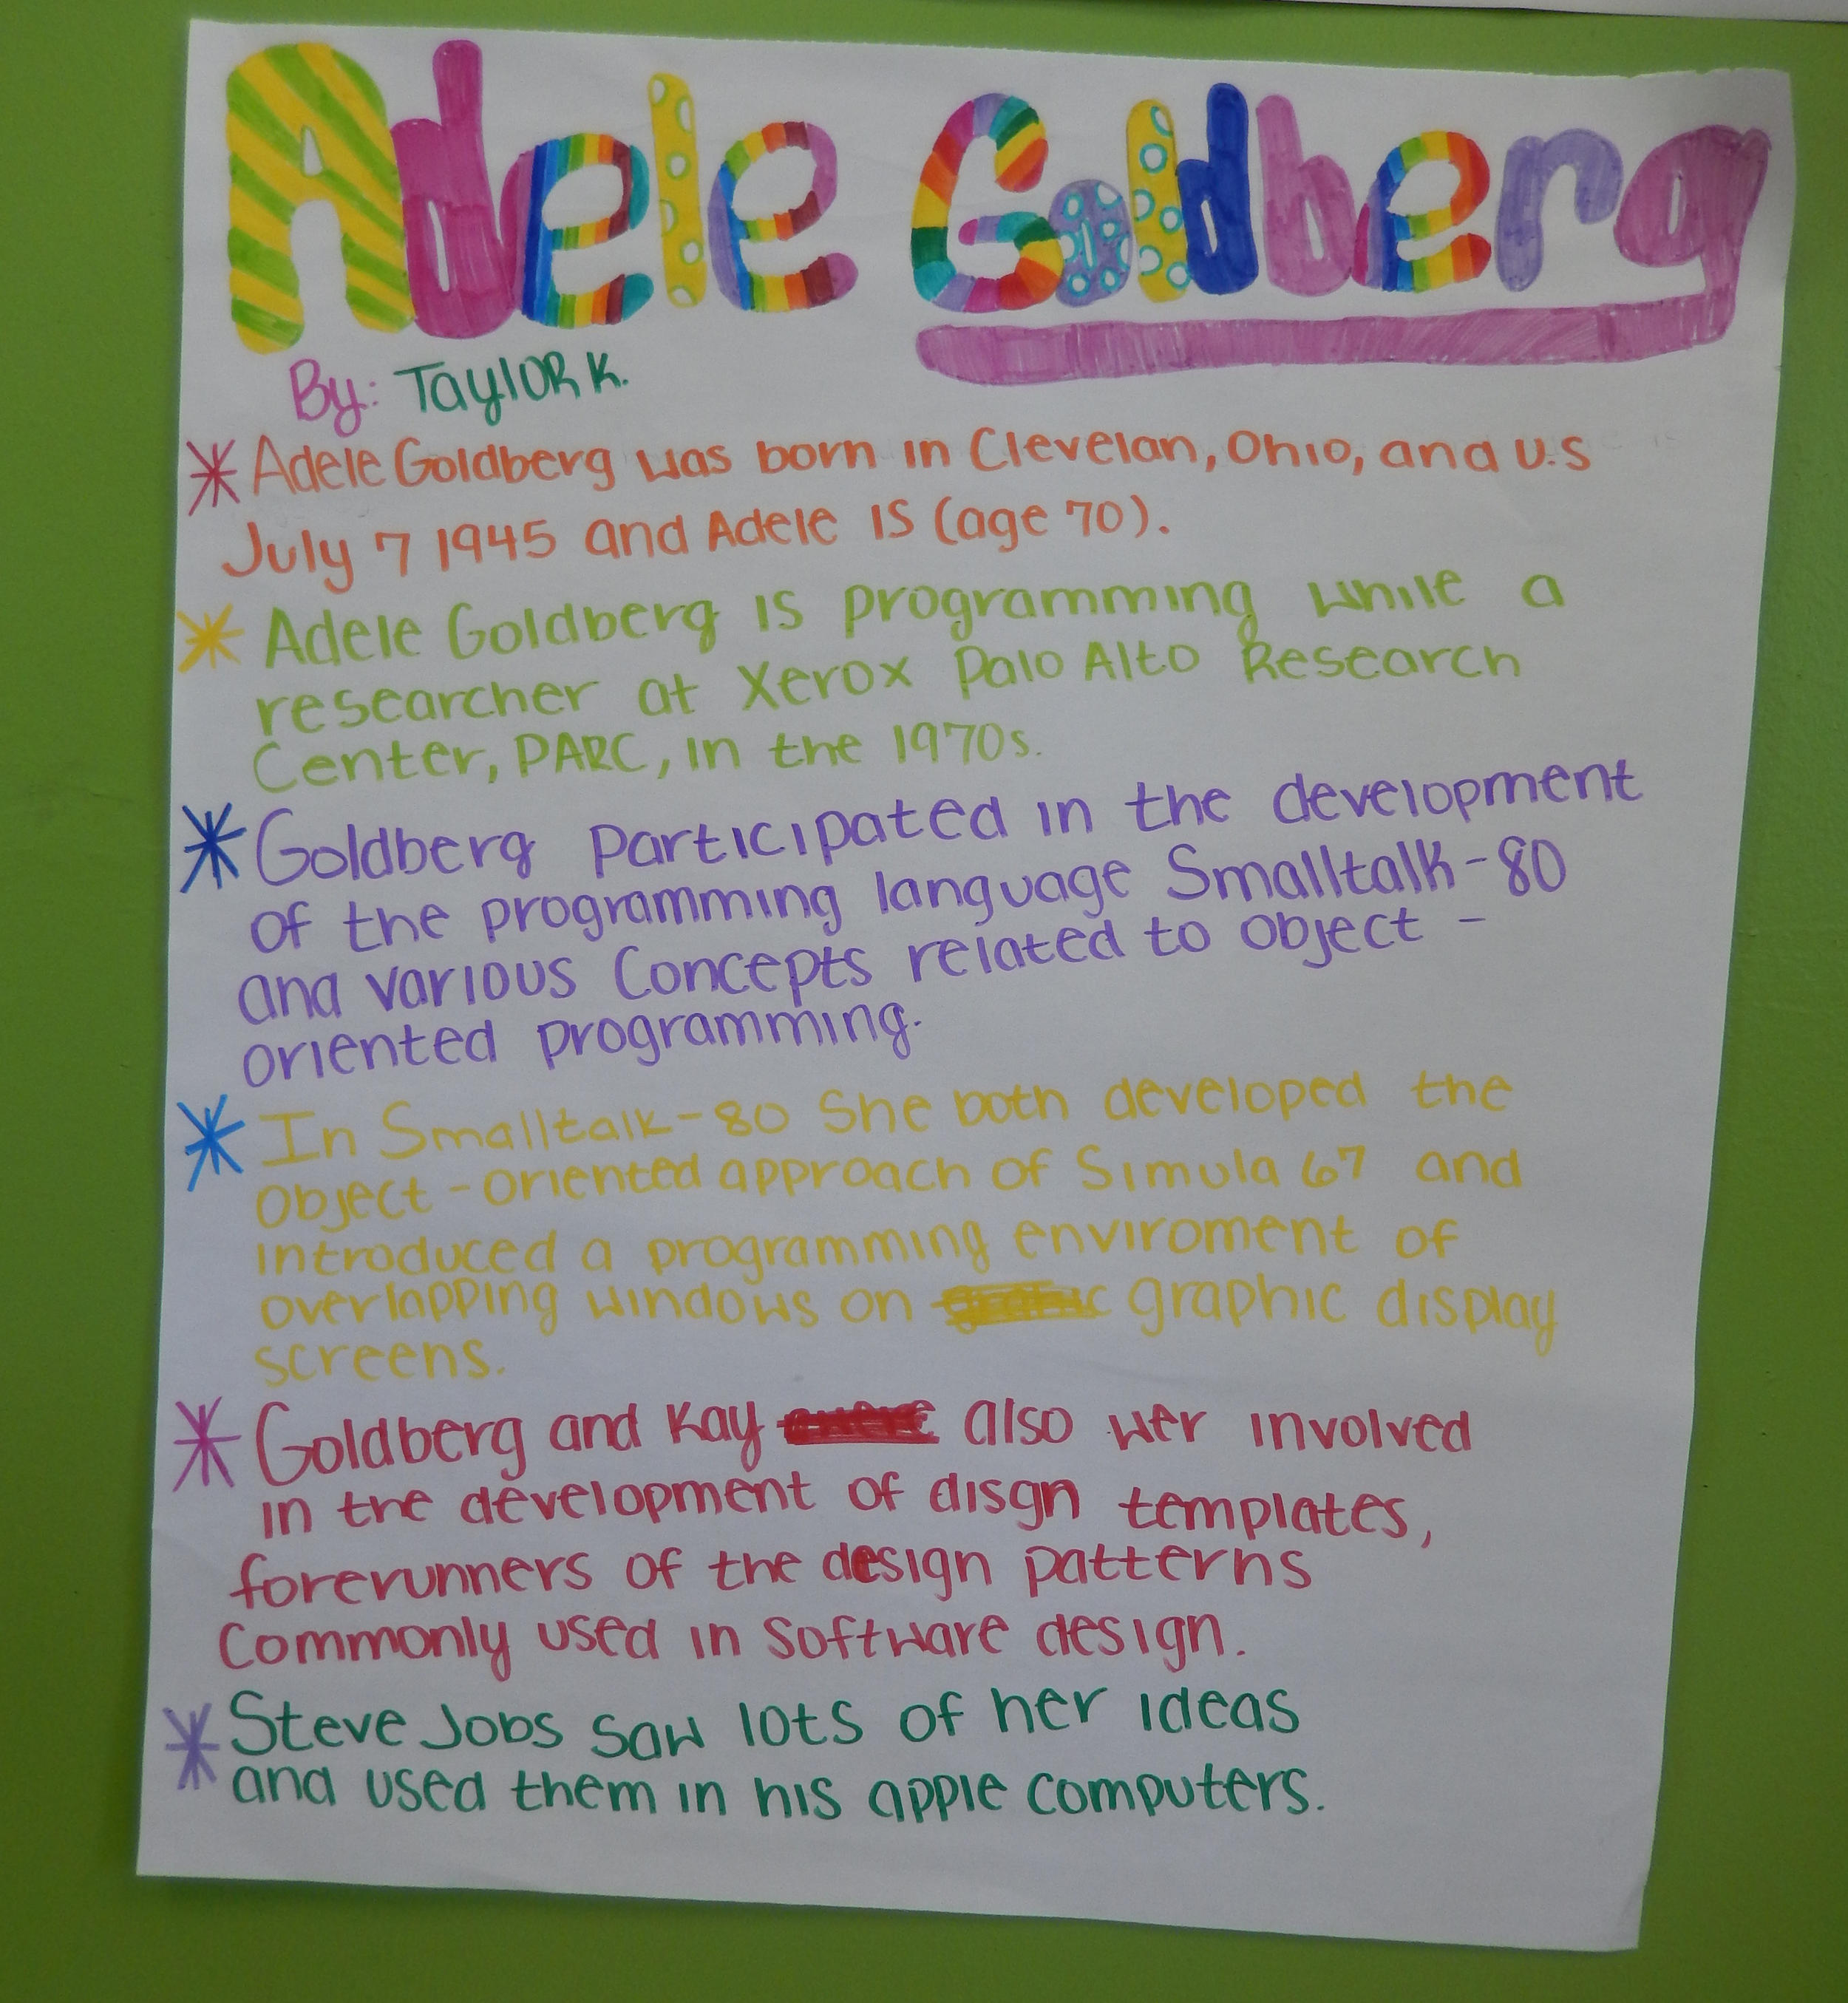 Adele Goldberg
By: Taylor K.
Adele Goldberg was born in Clevelan, Ohio, and U.S
July 7 1945 and Adele is (age 70).
Adele Goldberg is programming while a
researcher at Xerox Palo Alto Research
Center, PARC, in the 1970s.
Goldberg participated in the development
of the programming language Smalltalk-80
and various Concepts related to object -
oriented programming.
In Smalltalk-80 She both developed the
object - oriented approach of Simula 67 and
introduced a programming enviroment of
overlapping windows on graphic display
screens.
Goldberg and Kay also wer involved
in the development of disgn templates,
forerunners of the design patterns
Commonly used in Software design.
Steve Jobs saw lots of her ideas
and used them in his apple computers.